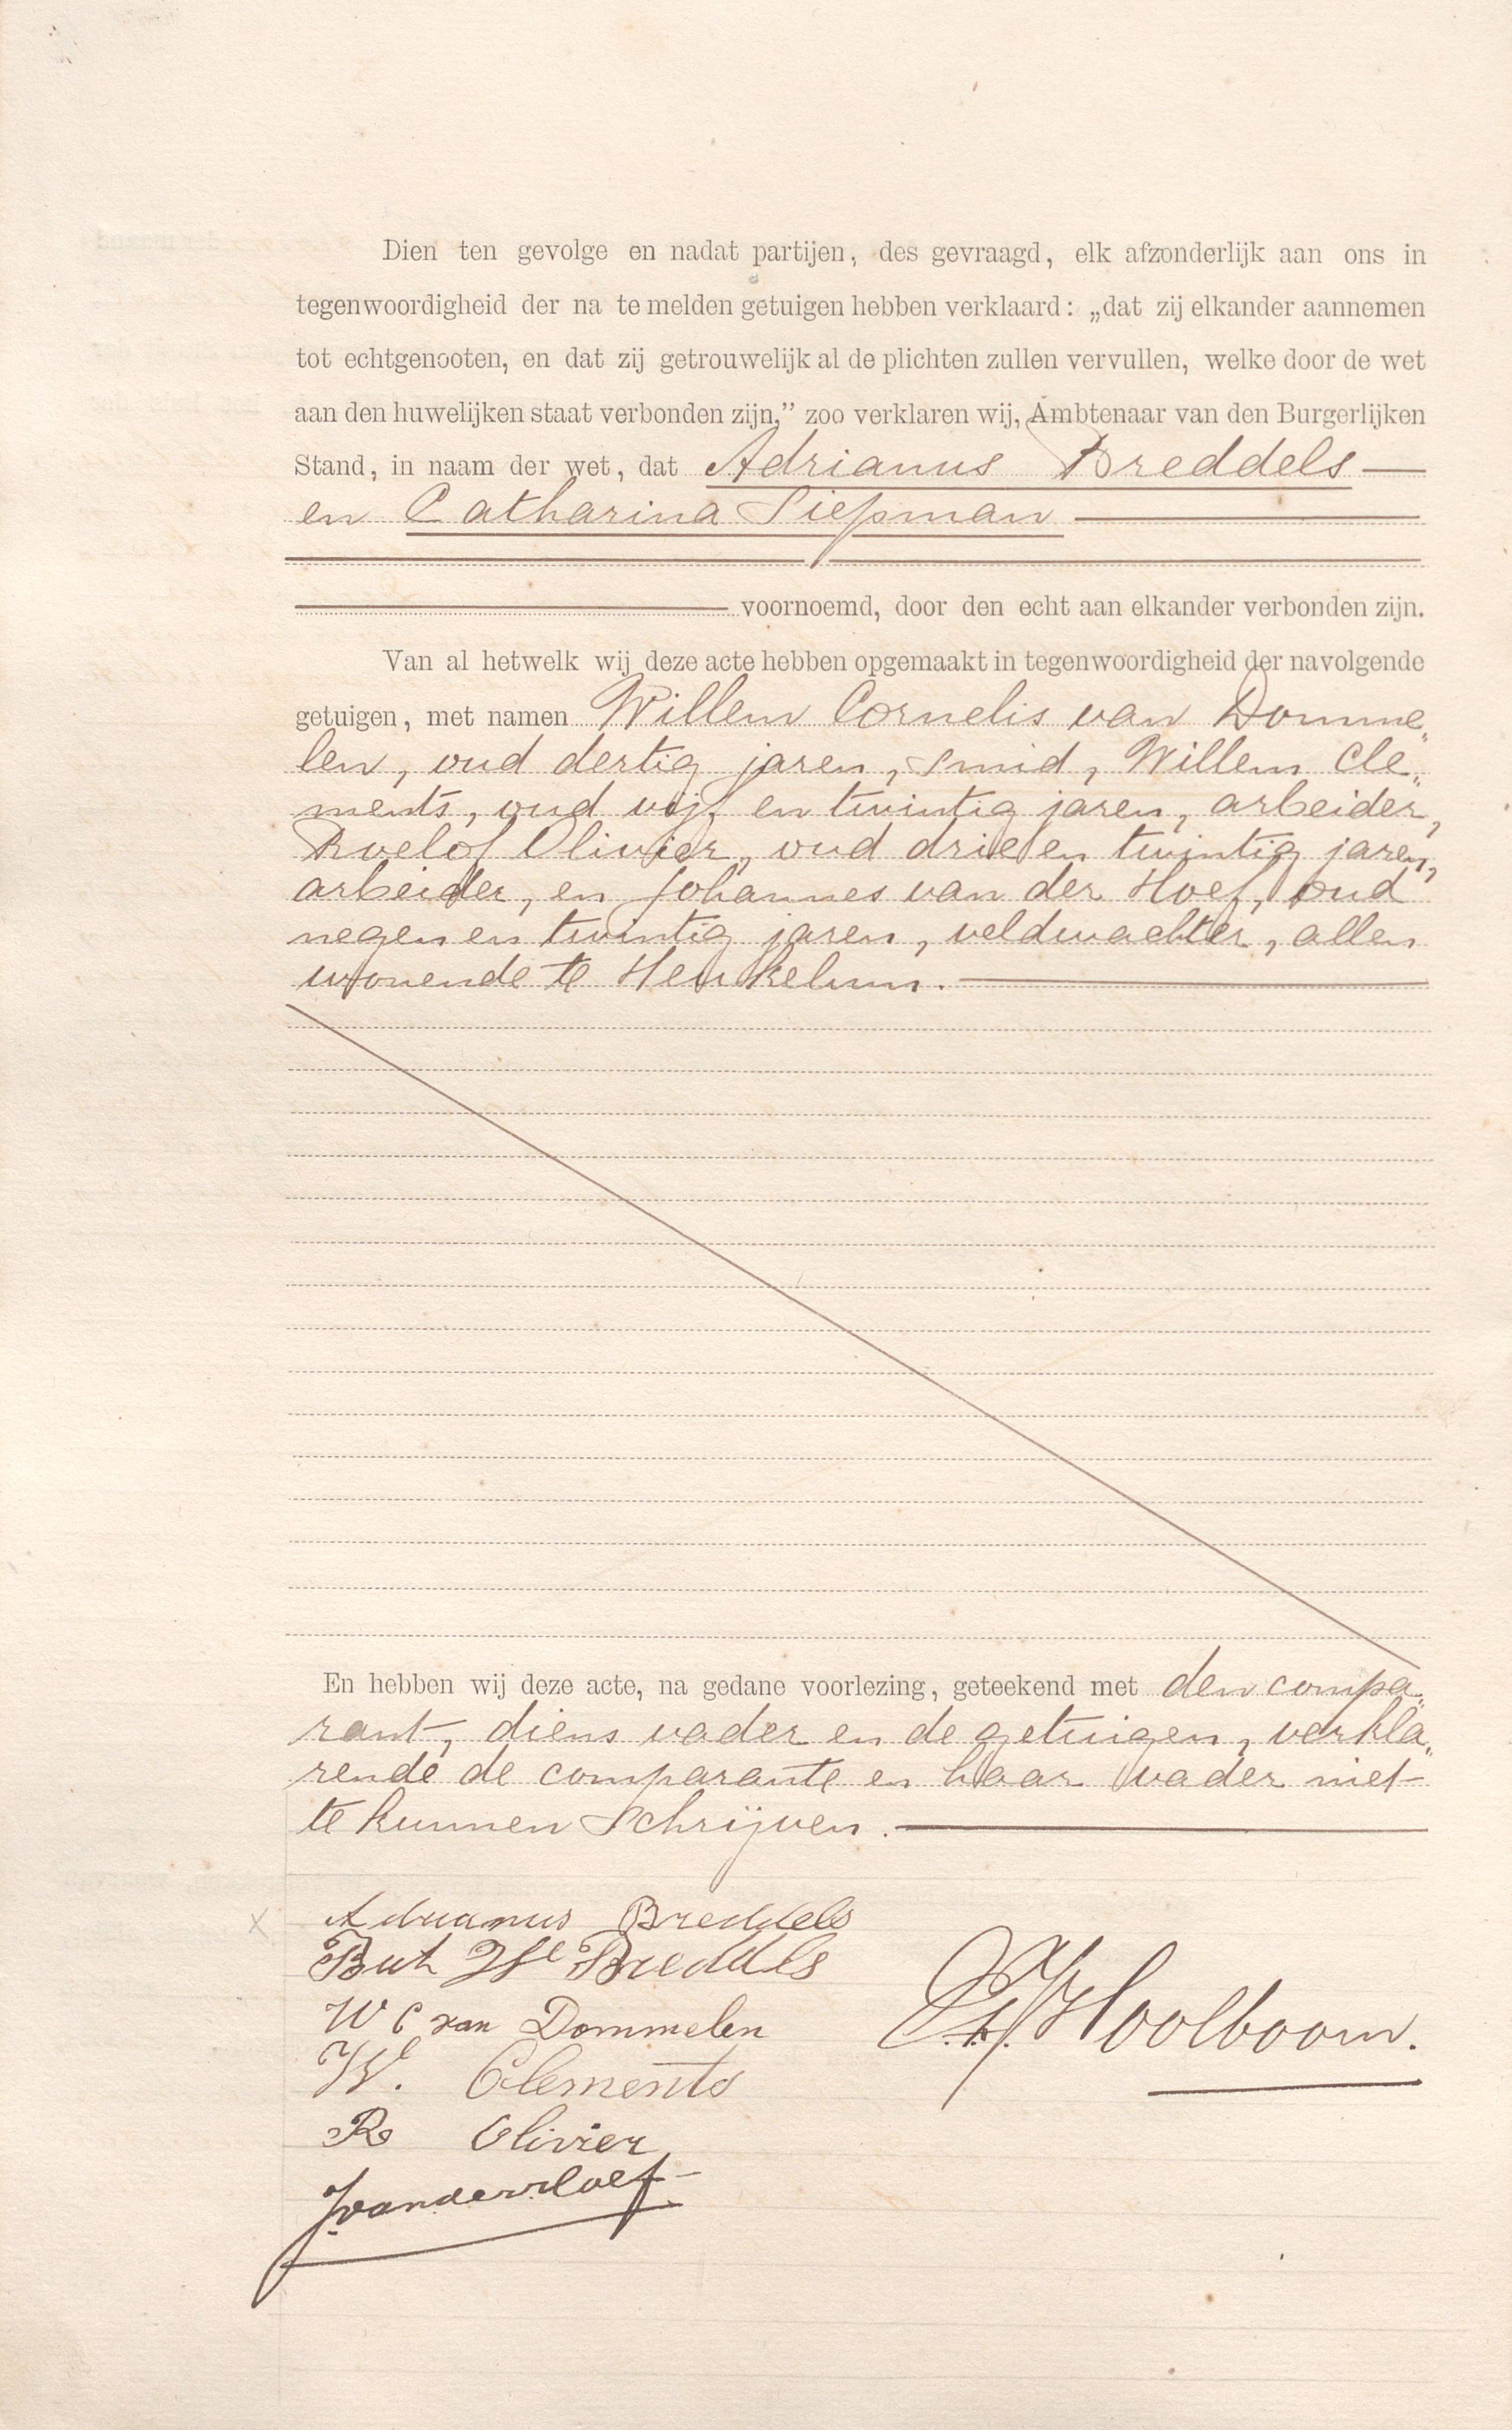 Dien ten gevolge en nadat partijen, des gevraagd, elk afzonderlijk aan ons in
tegenwoordigheid der na te melden getuigen hebben verklaard: „dat zij elkander aannemen
tot echtgenooten, en dat zij getrouwelijk al de plichten zullen vervullen, welke door de wet
aan den huwelijken staat verbonden zijn,” zoo verklaren wij, Ambtenaar van den Burgerlijken
Stand, in naam der wet, dat Adrianus Breddels
en Catharina
voornoemd, door den echt aan elkander verbonden zijn.
Van al hetwelk wij deze acte hebben opgemaakt in tegenwoordigheid der navolgende
getuigen, met namen Willem Cornelis van Domme„
len, oud dertig jaren, smid, Willem Cle„
ments, oud vijf en twintig jaren, arbeider,
Roelof Olivier, oud drie en twintig jaren,
arbeider, en Johannes van der Hoef, oud
negen en twintig jaren, veldwachter, allen
wonende te Heukelum.
En hebben wij deze acte, na gedane voorlezing, geteekend met den compa„
rant, diens vader en de getuigen, verkla„
rende de comparante en haar vader niet
te kunnen schrijven.
Adrianus Breddels
Breddels
W C van Dommelen
Hoolboom.
W. Clements
R Olivier
JvanderHoef